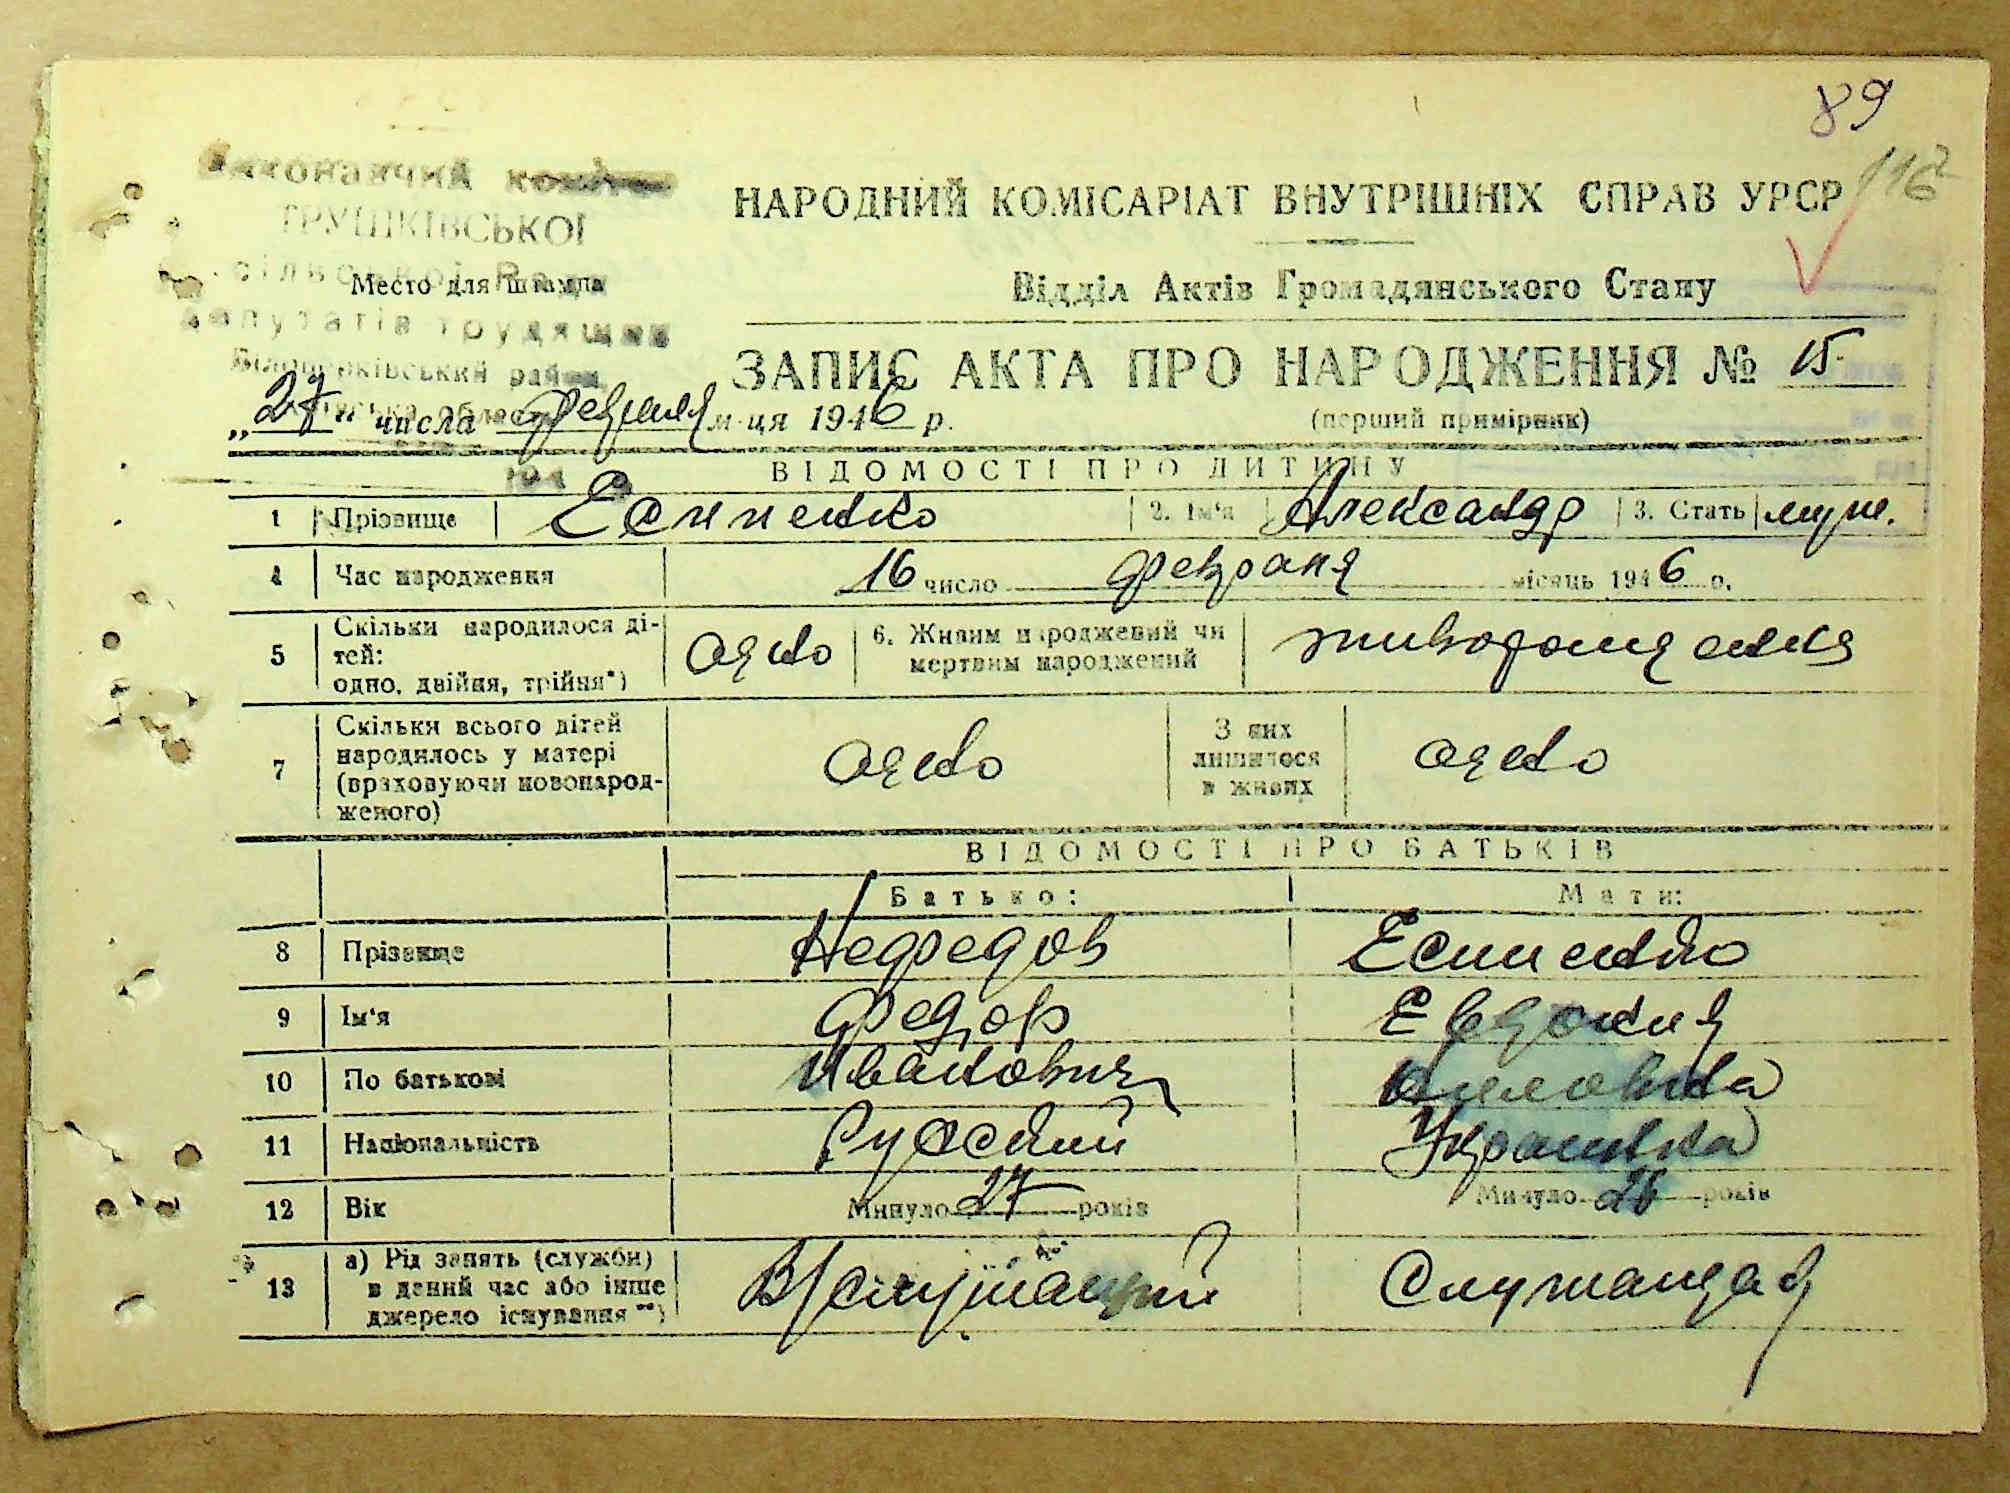 89
116
Виконавчий комітет
ТРУШКІВСЬКОЇ
сільської Ради
депутатів трудящих
Білоцерківський район
Київська область
194
НАРОДНИЙ КОМІСАРІАТ ВНУТРІШНІХ СПРАВ УРСР
Место для штампа
Відділ Актів Громадянського Стану
ЗАПИС АКТА ПРО НАРОДЖЕННЯ № 15
„27" числа февраля м-ця 1946 р.
(перший примірник)
ВІДОМОСТІ ПРО ДИТИНУ
1 Прізвище Есипенко 2. Ім'я Александр 3. Стать муж.
4 Час народження 16 число февраля місяць 1946 р.
5 Скільки народилося ді-
тей:
одно, двійня, трійня*) одно 6. Живим народжений чи
мертвим народжений живорожденная
7 Скільки всього дітей
народилось у матері
(враховуючи новонарод-
женого) одно З них
лишилося
в живих одно
ВІДОМОСТІ ПРО БАТЬКІВ
Батько: Мати:
8 Прізвище Нефедов Есипенко
9 Ім'я Федор Евдокия
10 По батькові Иванович
11 Національність Русский Украинка
12 Вік Минуло 27 років Минуло 26 років
13 а) Рід занять (служби)
в даний час або інше
джерело існування**) В/служащий Служащая